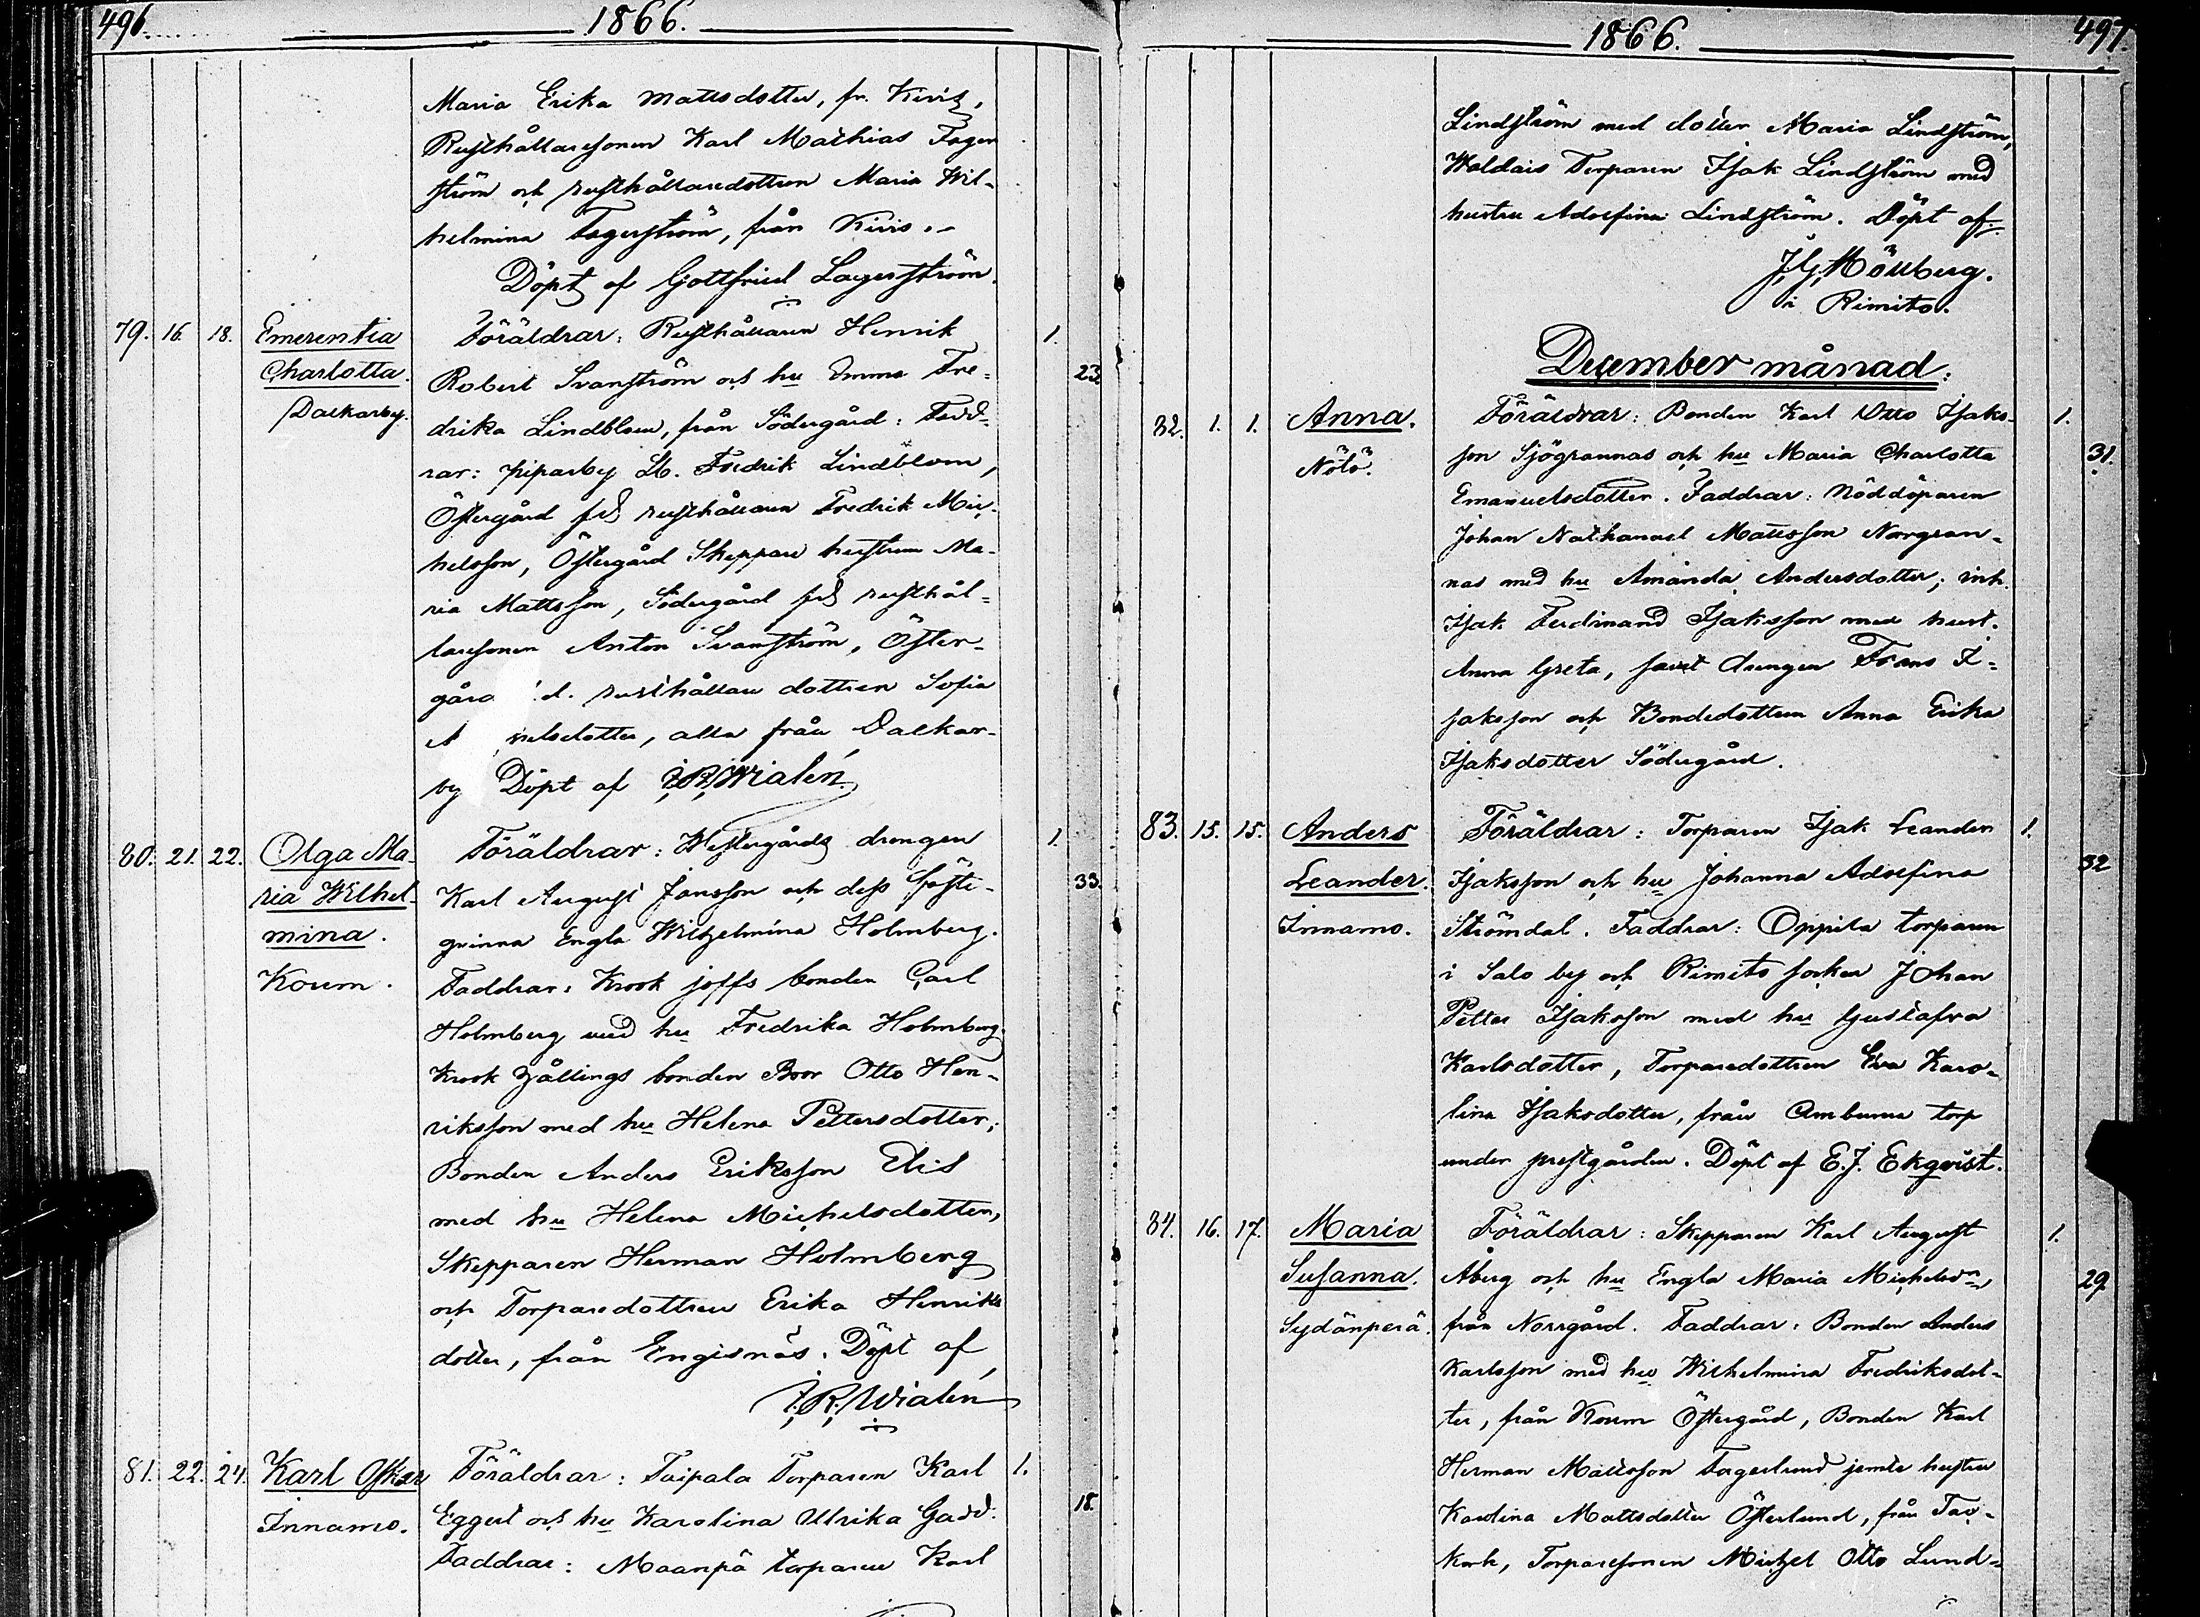 496.
1866.
Maria Erika Mattsdotter, fr. Kivis,
Rusthållaresonen Karl Mathias Fager
ström och rusthållaredottren Maria Wil-
helmina Fagerström, från Kivis.
Döpt af Gottfried Lagerström.
79. 16. 18. Emerentia Föräldrar: Rusthållaren Henrik 1.
Charlotta. Robert Svanström och hu Emma Fre- 23.
Dalkarby. drika Lindblom, från Södergård: Fadd-
rar: Piparby Fredrik Lindblom,
Östergård fd rusthållaren Fredrik Mic-
helsson, Östergård Skeppare hustrun Ma-
ria Mattsson, Södergård fd rusthål-
laresonen Anton Svanström, Öster-
gård d. rusthållare dottren Sofia
elsdotter, alla från Dalkar-
by Döpt af J.R. Wialén.
80. 21. 22. Olga Ma- Föräldrar: Westergårds drengen 1.
ria Wilhel- Karl August Jansson och dess fäste- 33.
mina. qvinna Engla Wilhelmina Holmberg.
Korum. Faddrar: Krook joffs bonden Carl
Holmberg med hu Fredrika Holmberg
Krook bonden Otto Hen-
riksson med hu Helena Pettersdotter,
Bonden Anders Eriksson Elis
med hu Helena Michelsdotter,
Skepparen Herman Holmberg
och Torparedottren Erika Henriks
dotter, från Engisnäs. Döpt af
J.R. Wialén
81. 22. 24. Karl Oskar Föräldrar: Taipala Torparen Karl 1.
Innamo. Eggert och hu Karolina Ulrika Gadd. 18.
Faddrar: Maanpä torparen Karl
1866. 497.
Lindström med dotter Maria Lindström,
Waldais Torparen Isak Lindström med
hustru Adolfina Lindström. Döpt af
J.G. Mönberg.
i Rimito.
December månad.
82. 1. 1. Anna. Föräldrar: Bonden Karl Otto Isaks- 1.
Nölö. son Sjögrannas och hu Maria Charlotta 31.
Emanuelsdotter. Faddrar: Nöddöparen
Johan Nathanael Mattsson Norgran-
nas med hu Amanda Andersdotter, inh.
Isak Ferdinand Isaksson med hust.
Anna Greta, samt drengen Frans I-
saksson och Bondedottren Anna Erika
Isaksdotter Södergård.
83. 15. 15. Anders Föräldrar: Torparen Isak Leander 1.
Leander. Isaksson och hu Johanna Adolfina 32
Innamo. Strömdal. Faddrar: Oppila torparen
i Salo by och Rimito socken Johan
Petter Isaksson med hu Gustafva
Karlsdotter, Torparedottren Eva Karo-
lina Isaksdotter, från Ambuma torp
under prestgården. Döpt af E.J. Ekqvist.
84. 16. 17. Maria Föräldrar: Skepparen Karl August 1.
Susanna. Åberg och hu Engla Maria Michelsdr, 29
Sydänperä. från Norrgård. Faddrar: Bonden Anders
Karlsson med hu Wilhelmina Fredriksdot-
ter, från Korum Östergård, Bonden Karl
Herman Mattsson Fagerlund jemte hustru
Karolina Mattsdotter Österlund, från Tav-
Kork, Torparesonen Michel Otto Lund-